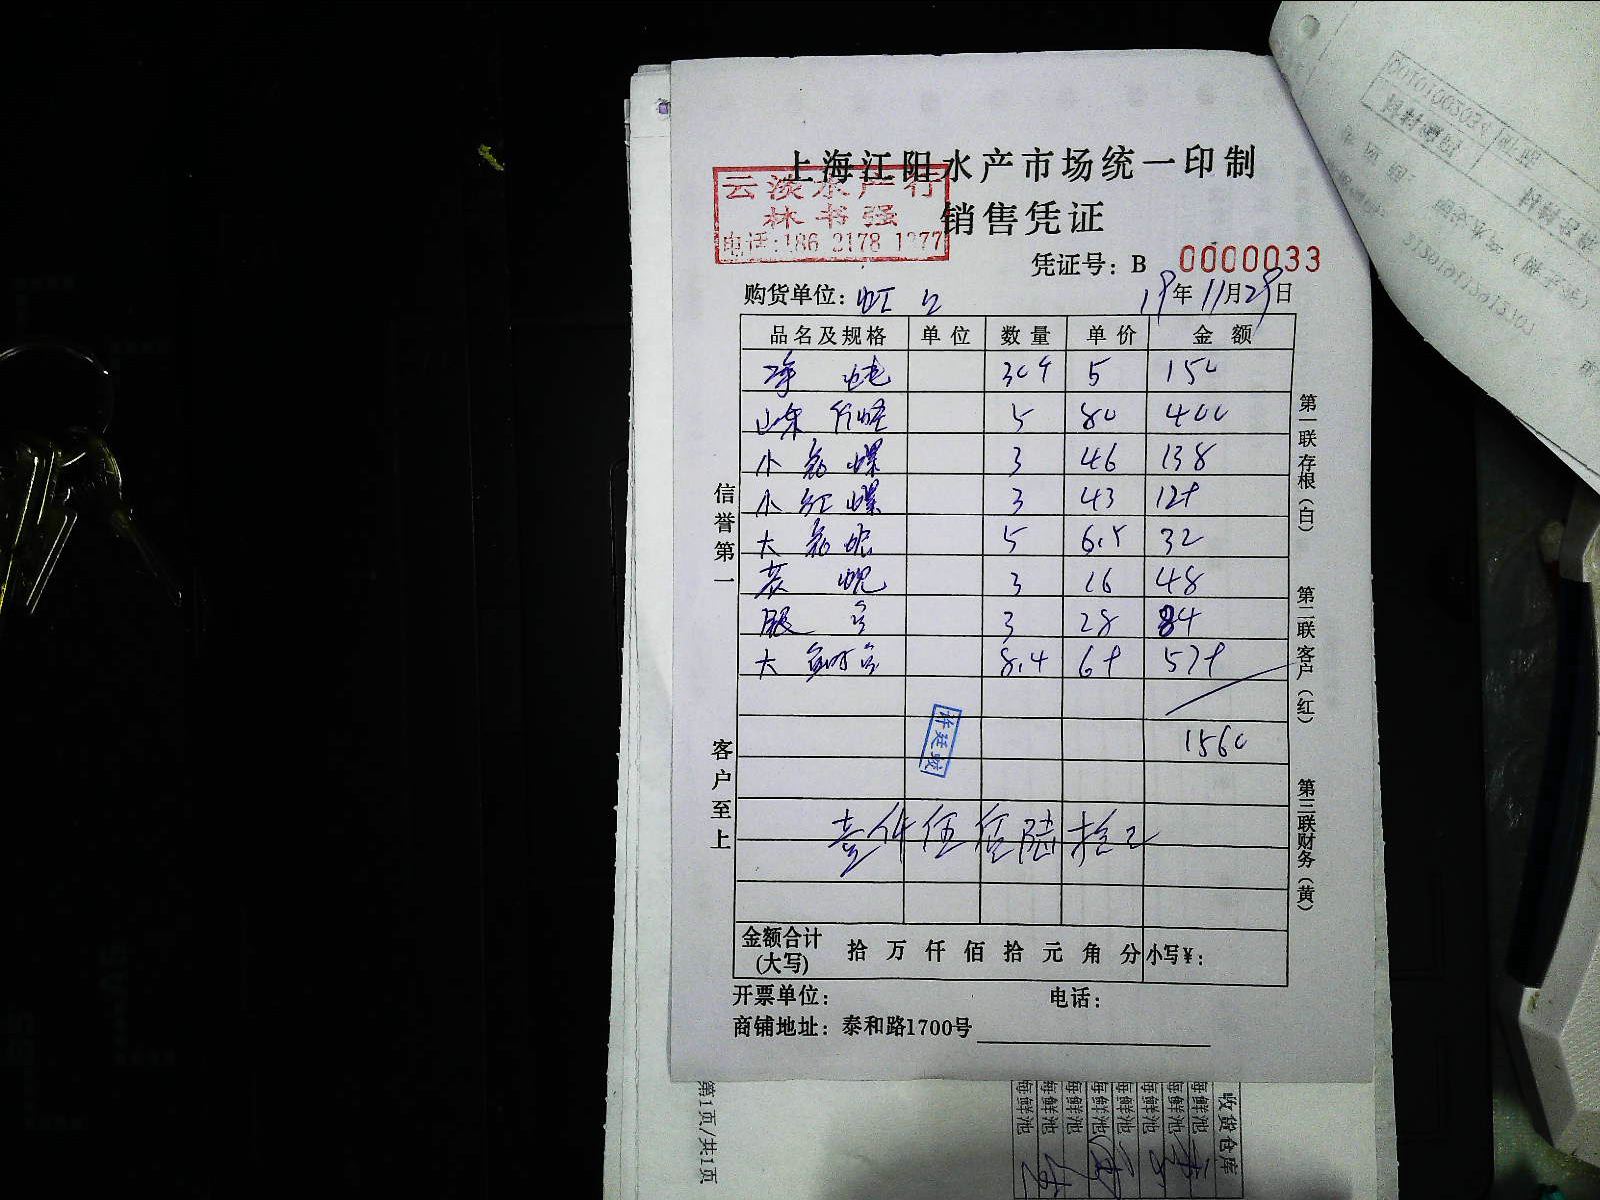 上海江阳水产市场统一印制
云淡水产行
林书强
电话:186 2178 1377
销售凭证
凭证号: B 0000033
购货单位: 虹口 19年11月29日
品名及规格 单位 数量 单价 金额
净 蛏 309 5 150
山东 竹蛏 5 80 400
小 螺 3 46 138
小 红 螺 3 43 129
大 5 6.5 32
蚬 3 16 48
3 28 84
大 8.4 69 579
1560
壹仟伍佰陆拾正
许廷蛟
金额合计(大写) 拾 万 仟 佰 拾 元 角 分 小写¥:
开票单位: 电话:
商铺地址: 泰和路1700号
信誉第一
客户至上
第一联存根(白)
第二联客户(红)
第三联财务(黄)
第1页/共1页
收货仓库
海鲜池
海鲜池
海鲜池
海鲜池
海鲜池
海鲜池
海鲜池
海鲜池